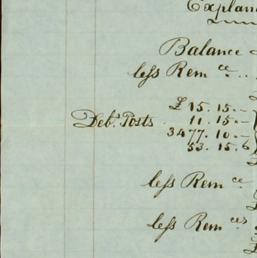 Explan
Balance
less Rem ce ..
£ 15. 15. —
Deb. Posts 11. 15 —
3477. 10. —
53. 15. 6
less Rem ce
less Rem ces